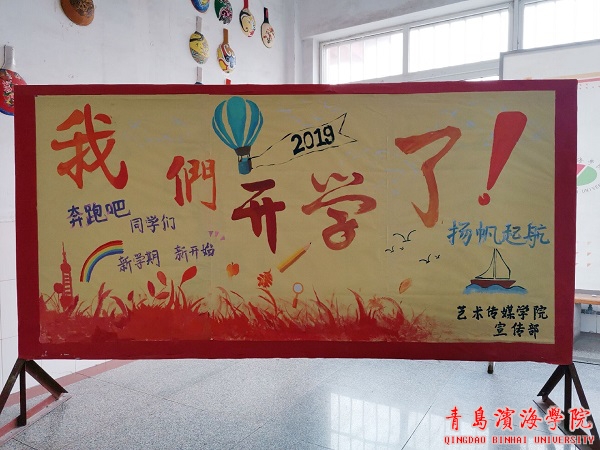 2019
我們开学了!
奔跑吧
同学们
新学期 新开始
扬帆起航
艺术传媒学院
宣传部
青島濱海學院
QINGDAO BINHAI UNIVERSITY